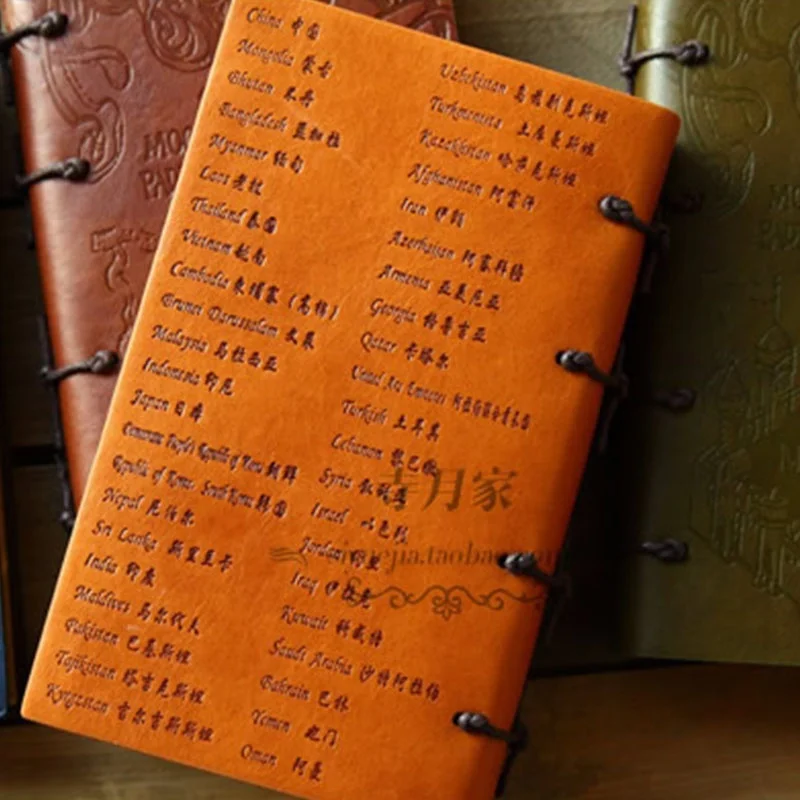 China 中国
Mongolia 蒙古
Bhutan 不丹
Bangladesh 孟加拉
Myanmar 缅甸
Laos 老挝
Thailand 泰国
Vietnam 越南
Cambodia 柬埔寨（高棉）
Brunei Darussalam 文莱
Malaysia 马拉西亚
Indonesia 印尼
Japan 日本
People's Republic of Korea 朝鲜
Republic of Korea South Korea 韩国
Nepal 尼泊尔
Sri Lanka 斯里兰卡
India 印度
Maldives 马尔代夫
Pakistan 巴基斯坦
Tajikistan 塔吉克斯坦
Kyrgzstan 吉尔吉斯斯坦
Uzbekistan 乌兹别克斯坦
Turkmenista 土库曼斯坦
Kazakhstan 哈萨克斯坦
Afghanistan 阿富汗
Iran 伊朗
Azerbaijan 阿塞拜疆
Armenia 亚美尼亚
Georgia 格鲁吉亚
Qatar 卡塔尔
United Ara Emirates 阿拉伯联合酋长国
Turkish 土耳其
Lebanon 黎巴嫩
Syria 叙利亚
Israel 以色列
Jordan 约旦
Iraq 伊拉克
Kuwait 科威特
Saudi Arabia 沙特阿拉伯
Bahrain 巴林
Yemen 也门
Oman 阿曼
月家
MOO
PAP
MO
PAD